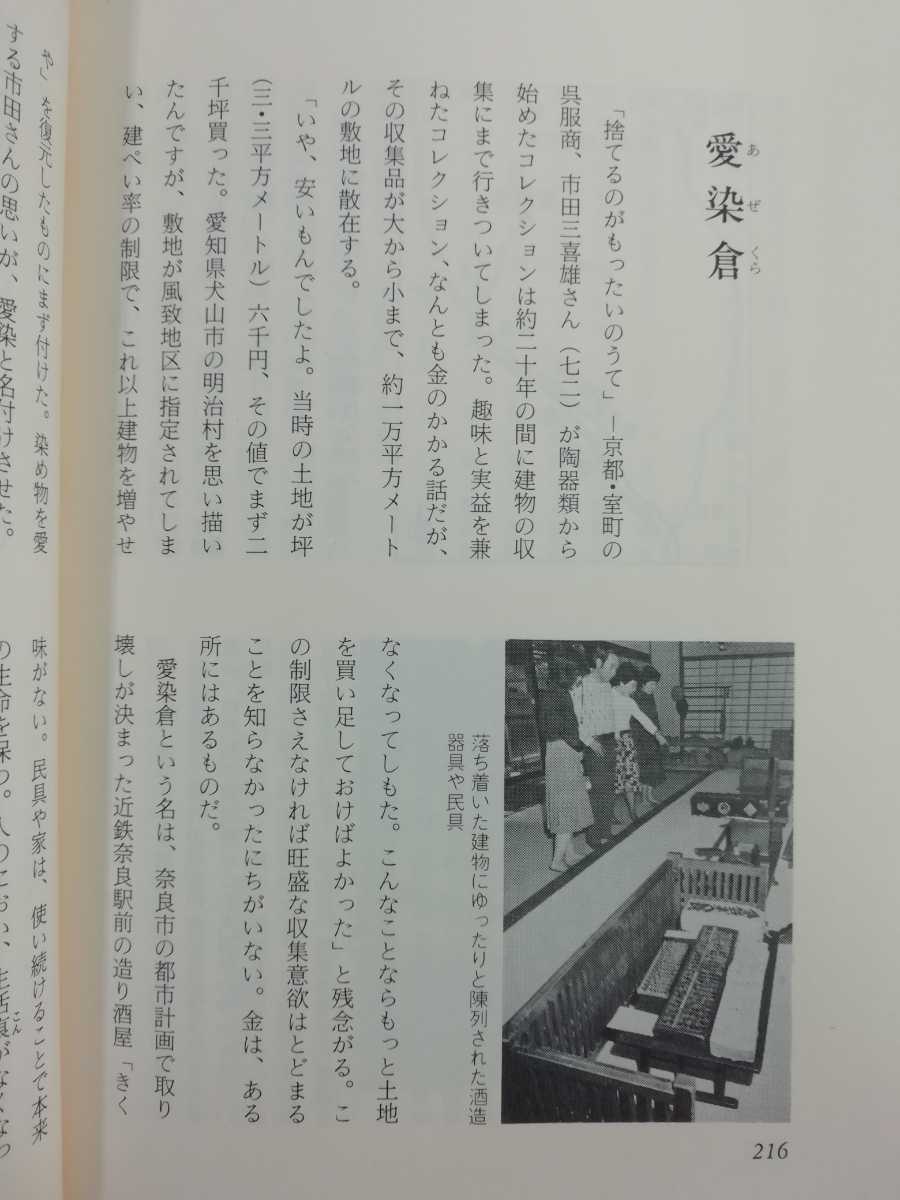 愛染倉
あぜくら
「捨てるのがもったいのうて」―京都・室町の
呉服商、市田三喜雄さん（七二）が陶器類から
始めたコレクションは約二十年の間に建物の収
集にまで行きついてしまった。趣味と実益を兼
ねたコレクション、なんとも金のかかる話だが、
その収集品が大から小まで、約一万平方メート
ルの敷地に散在する。
「いや、安いもんでしたよ。当時の土地が坪
（三・三平方メートル）六千円、その値でまず二
千坪買った。愛知県犬山市の明治村を思い描い
たんですが、敷地が風致地区に指定されてしま
い、建ぺい率の制限で、これ以上建物を増やせ
落ち着いた建物にゆったりと陳列された酒造
器具や民具
なくなってしもた。こんなことならもっと土地
を買い足しておけばよかった」と残念がる。こ
の制限さえなければ旺盛な収集意欲はとどまる
ことを知らなかったにちがいない。金は、ある
所にはあるものだ。
愛染倉という名は、奈良市の都市計画で取り
壊しが決まった近鉄奈良駅前の造り酒屋「きく
216
や」を復元したものにまず付けた。染め物を愛
する市田さんの思いが、愛染と名付けさせた。
味がない。民具や家は、使い続けることで本来
の生命を保つ。人のにおい、生活痕がなくなっ
こん